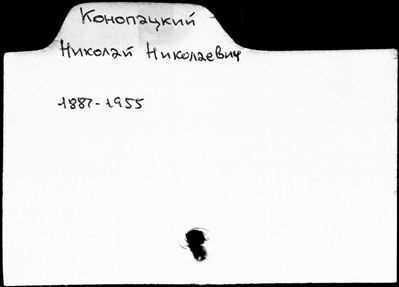 Конопацкий
Николай Николаевич
1887-1955